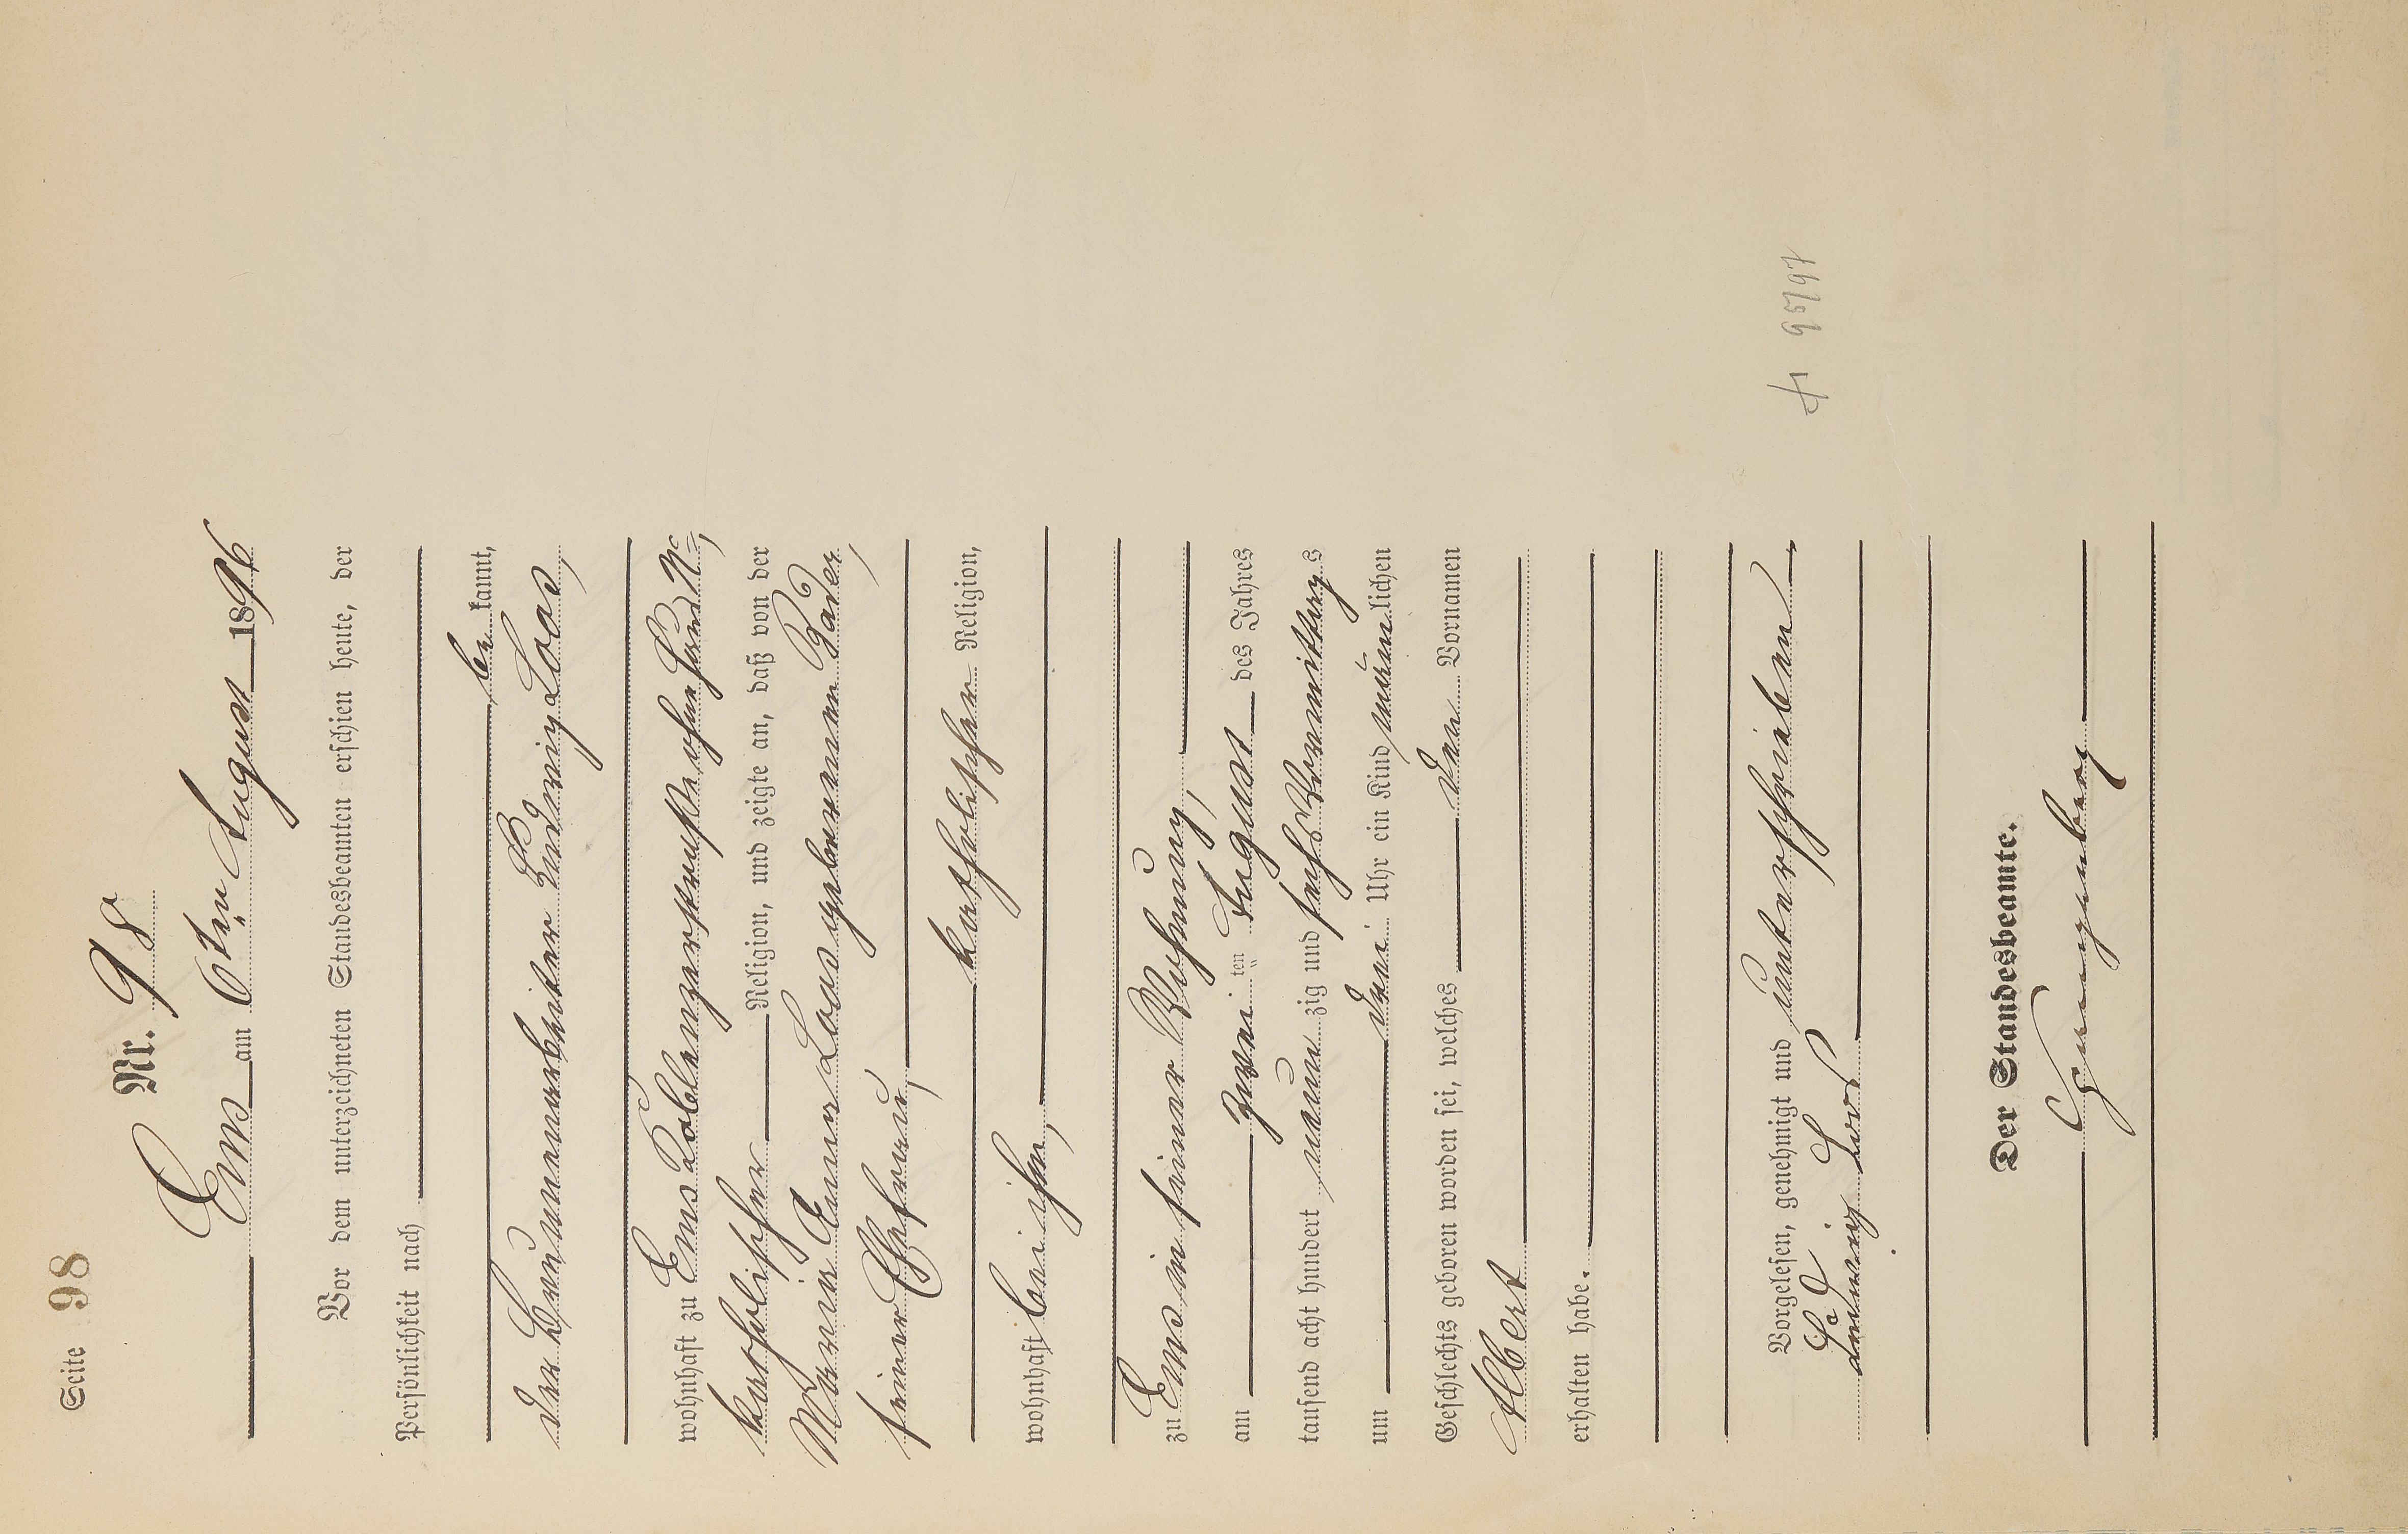 Seite 98
Nr. 98
Ems am 6ten August 1896
Vor dem unterzeichneten Standesbeamten erschien heute, der
Persönlichkeit nach
be kannt,
der Brunnenarbeiter Ludwig Loos,
wohnhaft zu Ems Koblenzerstraße ohne Haus No,
katholischer Religion, und zeigte an, daß von der
Maria Anna Loos geborenen Bader,
seiner Ehefrau,
katholischer Religion,
wohnhaft bei ihm,
zu Ems in seiner Wohnung,
am zwei ten August des Jahres
tausend acht hundert neun zig und sechs Vormittags
um drei Uhr ein Kind männ lichen
Geschlechts geboren worden sei, welches den Vornamen
Albert
erhalten habe.
Vorgelesen, genehmigt und unterschrieben
Ludwig Loos
Der Standesbeamte.
† 95/97